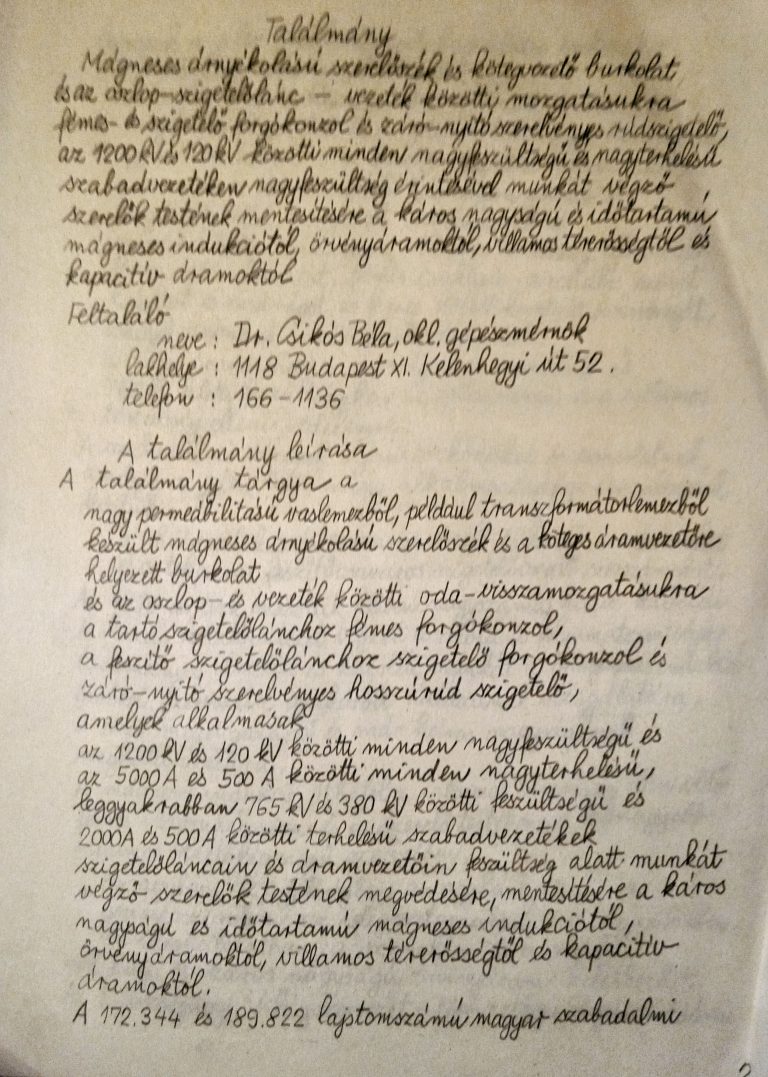 Találmány
Mágneses árnyékolású szerelőszék és kötegvezető burkolat,
és az oszlop-szigetelőlánc - vezeték közötti mozgatásukra
fémes- és szigetelő forgókonzol és záró-nyitó szerelvényes rúdszigetelő,
az 1200 kV és 120 kV közötti minden nagyfeszültségű és nagyterhelésű
szabadvezetéken nagyfeszültség érintésével munkát végző
szerelők testének mentesítésére a káros nagyságú és időtartamú
mágneses indukciótól, örvényáramoktól, villamos térerősségtől és
kapacitív áramoktól
Feltaláló
neve : Dr. Csikós Béla, okl. gépészmérnök
lakhelye : 1118 Budapest XI. Kelenhegyi út 52.
telefon : 166-1136
A találmány leírása
A találmány tárgya a
nagy permeábilitású vaslemezből, például transzformátorlemezből
készült mágneses árnyékolású szerelőszék és a köteges áramvezetőre
helyezett burkolat
és az oszlop- és vezeték közötti oda-visszamozgatásukra
a tartó szigetelőlánchoz fémes forgókonzol,
a feszítő szigetelőlánchoz szigetelő forgókonzol és
záró-nyitó szerelvényes hosszúrúd szigetelő,
amelyek alkalmasak
az 1200 kV és 120 kV közötti minden nagyfeszültségű és
az 5000 A és 500 A közötti minden nagyterhelésű,
leggyakrabban 765 kV és 380 kV közötti feszültségű és
2000 A és 500 A közötti terhelésű szabadvezetékek
szigetelőláncain és áramvezetőin feszültség alatt munkát
végző szerelők testének megvédésére, mentesítésére a káros
nagyságú és időtartamú mágneses indukciótól,
örvényáramoktól, villamos térerősségtől és kapacitív
áramoktól.
A 172.344 és 189.822 lajstomszámú magyar szabadalmi